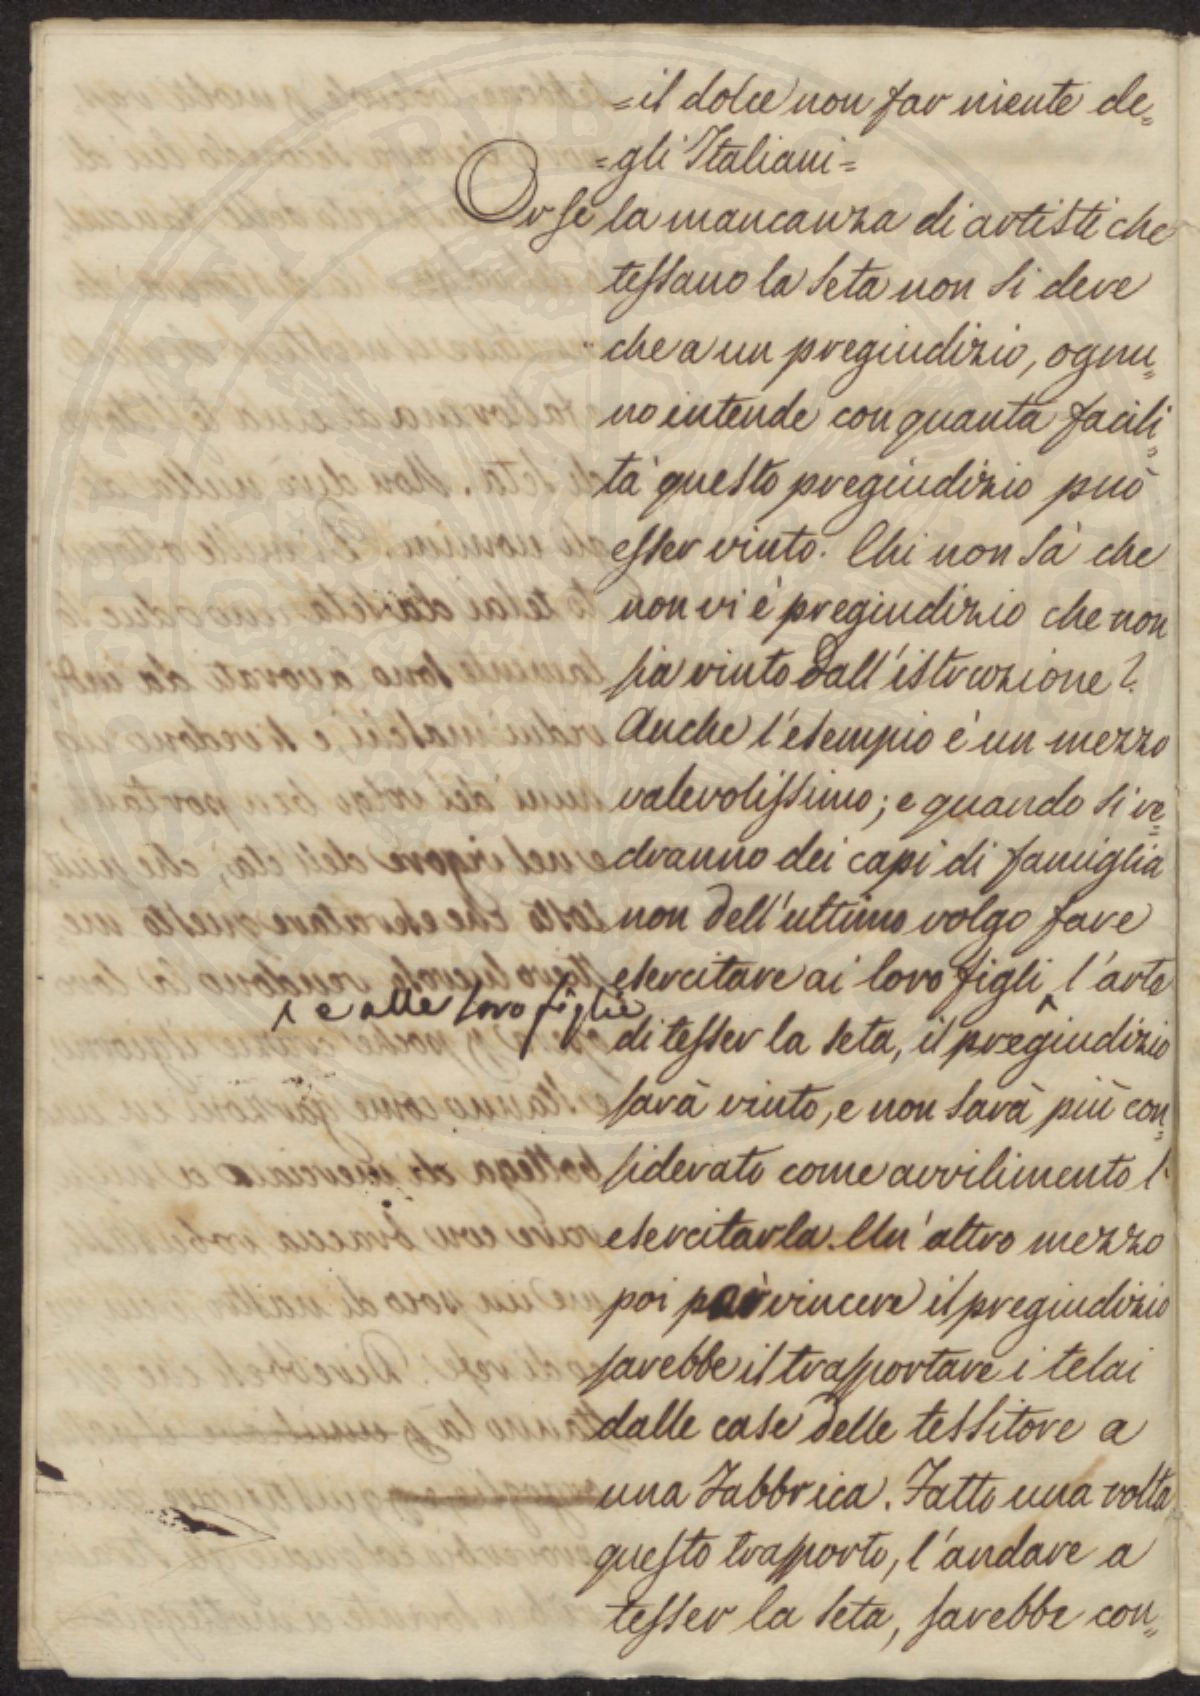 =il dolce non far niente de=
=gli Italiani=
Or se la mancanza di artisti che
tessano la seta non si deve
che a un pregiudizio, ognu=
no intende con quanta facili=
tà questo pregiudizio può
esser vinto. Chi non sà che
non vi è pregiudizio che non
sia vinto dall'istruzione?
Anche l'esempio è un mezzo
valevolissimo; e quando si ve=
dranno dei capi di famiglia
non dell'ultimo volgo fare
esercitare ai loro figli ^ l'arte
^ e alle loro figlie
di tesser la seta, il pregiudizio
sarà vinto, e non sarà più con=
siderato come avvilimento l'
esercitarla. Un'altro mezzo
poi per vincere il pregiudizio
sarebbe il trasportare i telai
dalle case delle tessitore a
una Fabbrica. Fatto una volta
questo trasporto, l'andare a
tesser la seta, sarebbe con=